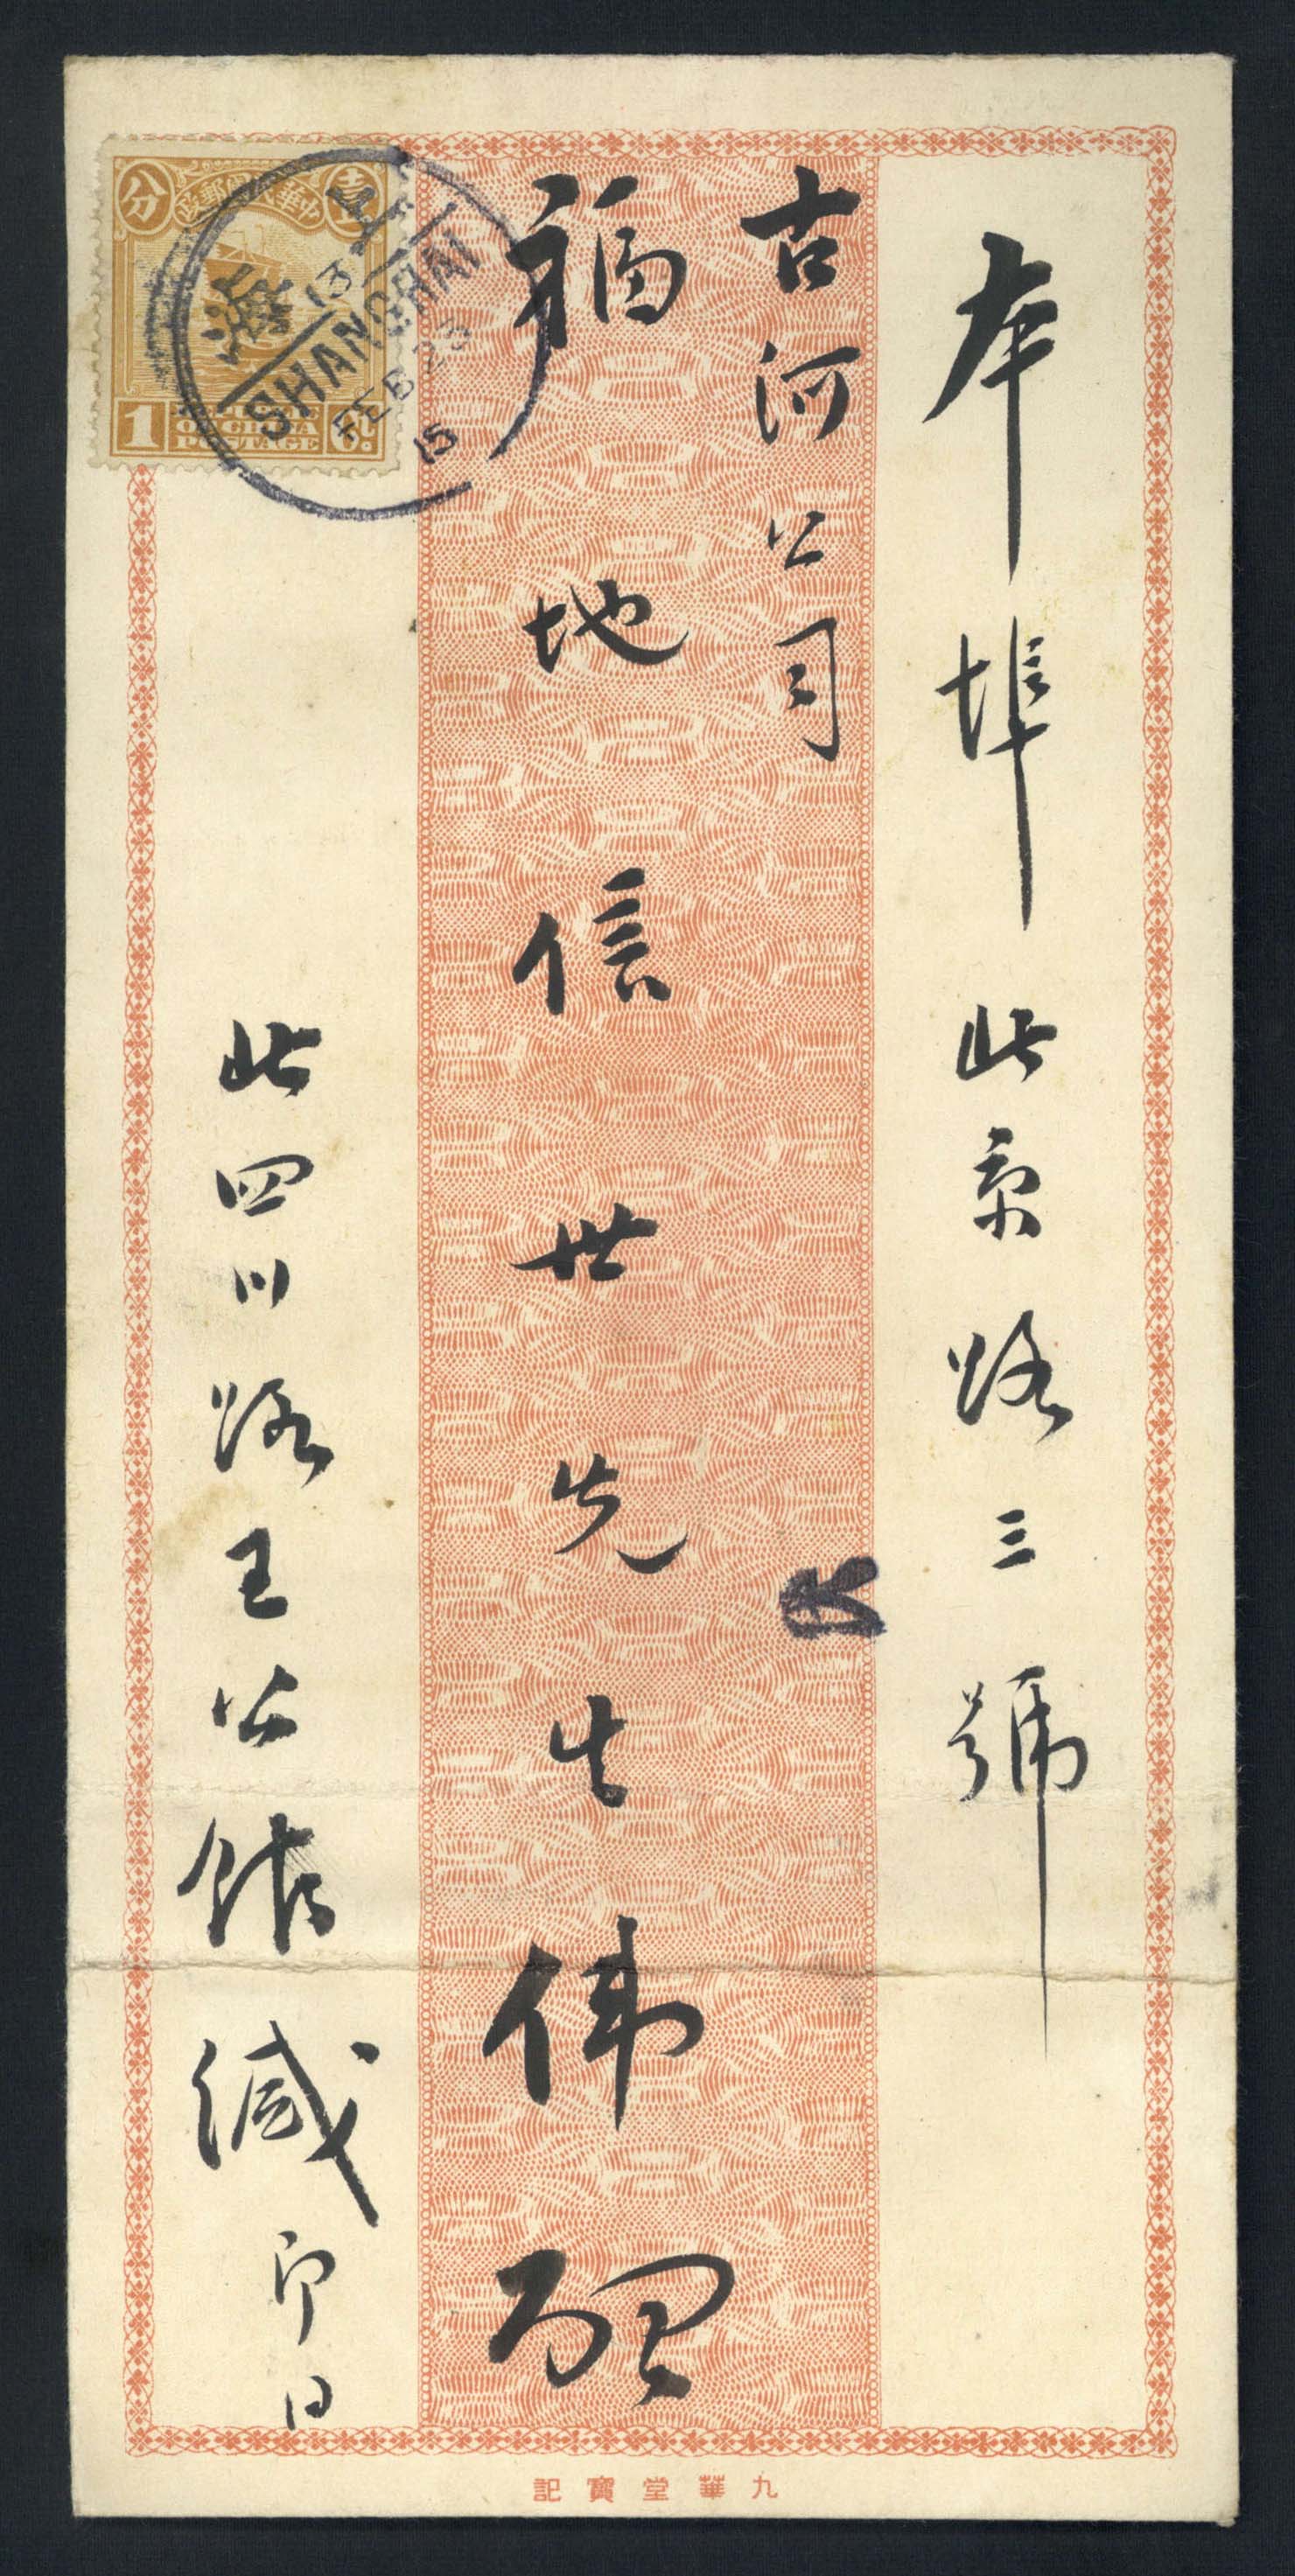 本埠北京路三號
古河公司
福地信世先生偉啟
北四川路王公館緘 即日
中華民國郵政
壹
分
1
OF CHINA
POSTAGE
上海
13
SHANGHAI
FEB 23
15
九華堂寶記